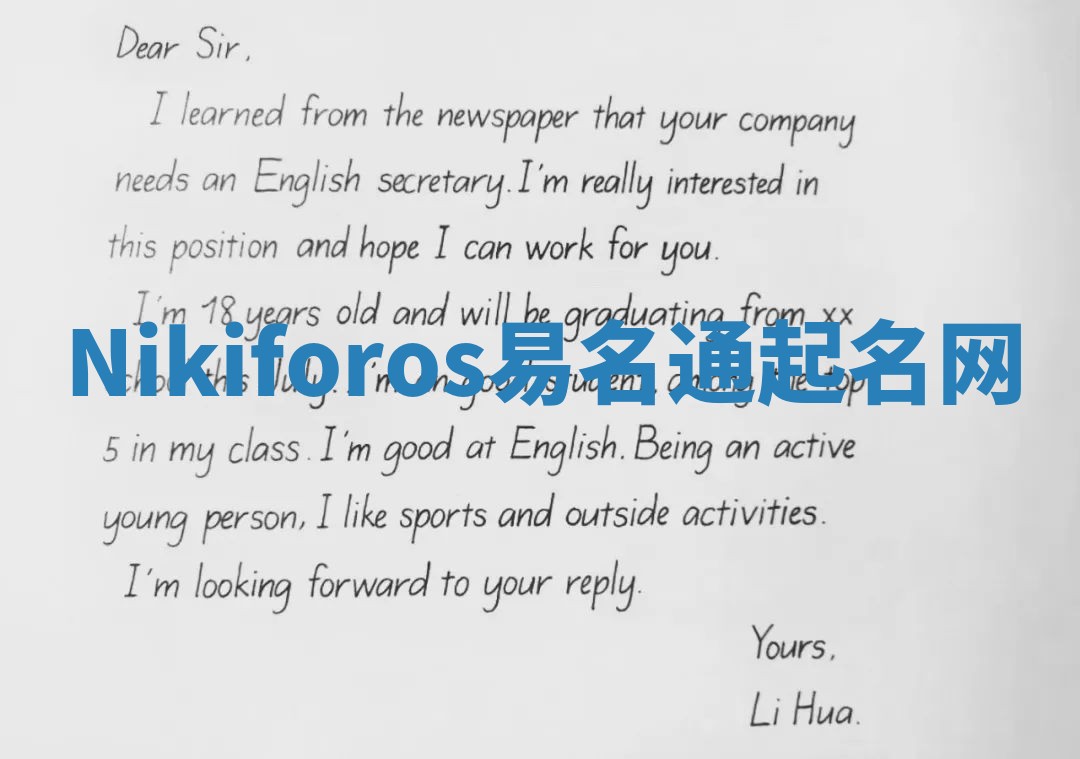 Dear Sir,
I learned from the newspaper that your company
needs an English secretary. I'm really interested in
this position and hope I can work for you.
I'm 18 years old and will be graduating from xx
Nikiforos易名通起名网
school this July. I'm a good student, among the top
5 in my class. I'm good at English. Being an active
young person, I like sports and outside activities.
I'm looking forward to your reply.
Yours,
Li Hua.